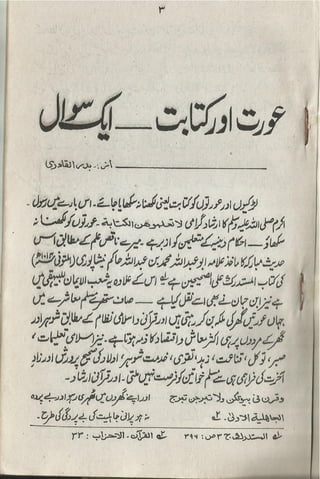 ۳
عورت اور کتابت — ایک سوال
از:۔ بدر القادری
لڑکیوں اور عورتوں کو کتابت یعنی لکھنا نہ سکھایا جائے۔ اس بارے میں رسول
اکرم صلی اللہ علیہ وسلم کا ارشاد گرامی لا تعلموھن الکتابة۔ عورتوں کو لکھنا نہ
سکھاؤ — احکام دینیہ کے متعلمین کو ازبر ہے۔ میرے ناقص علم کے مطابق اس
حدیث مبارکہ کا ماخذ علامہ ابو عبداللہ محمد بن عبداللہ حاکم نیشاپوری (متوفی
کی کتاب المستدرک علی الصحیحین ہے لے اس کے علاوہ یہ شعب الایمان للبیہقی میں
ہے نیز ابن حبان نے بھی اسے نقل کیا ہے — صاف ستھرے مسلم معاشرے میں
جہاں عورتیں گھر کی ملکہ بن کر رہتی ہیں اور قرآنی و اسلامی نظام کے مطابق شوہر اور
گھر کے مردوں پر ہی اکثر معاش و اقتصاد کا ذمہ ہوتا ہے۔ نیز اسلامی تعلیمات،
صبر، توکل، قناعت، زہد، تقویٰ، خدمت شوہر، اولاد کی صحیح پرورش اور زادِ
آخرت کی فراہمی ہی سے مسلم خواتین کو فرصت نہیں ملتی۔ اور قرآنی ارشاد۔
وقرن فی بیوتکن ولا تبرجن تبرج اور اپنے گھروں میں ٹھہری رہو اور بے پردہ
الجاهلية الاولیٰ۔ ۲ نہ ہو پرانی جاہلیت کی بے پردگی کی طرح۔
۱ المستدرک، ج ۳ ص: ۳۹۶ ۲ القرآن۔ الاحزاب: ۳۳